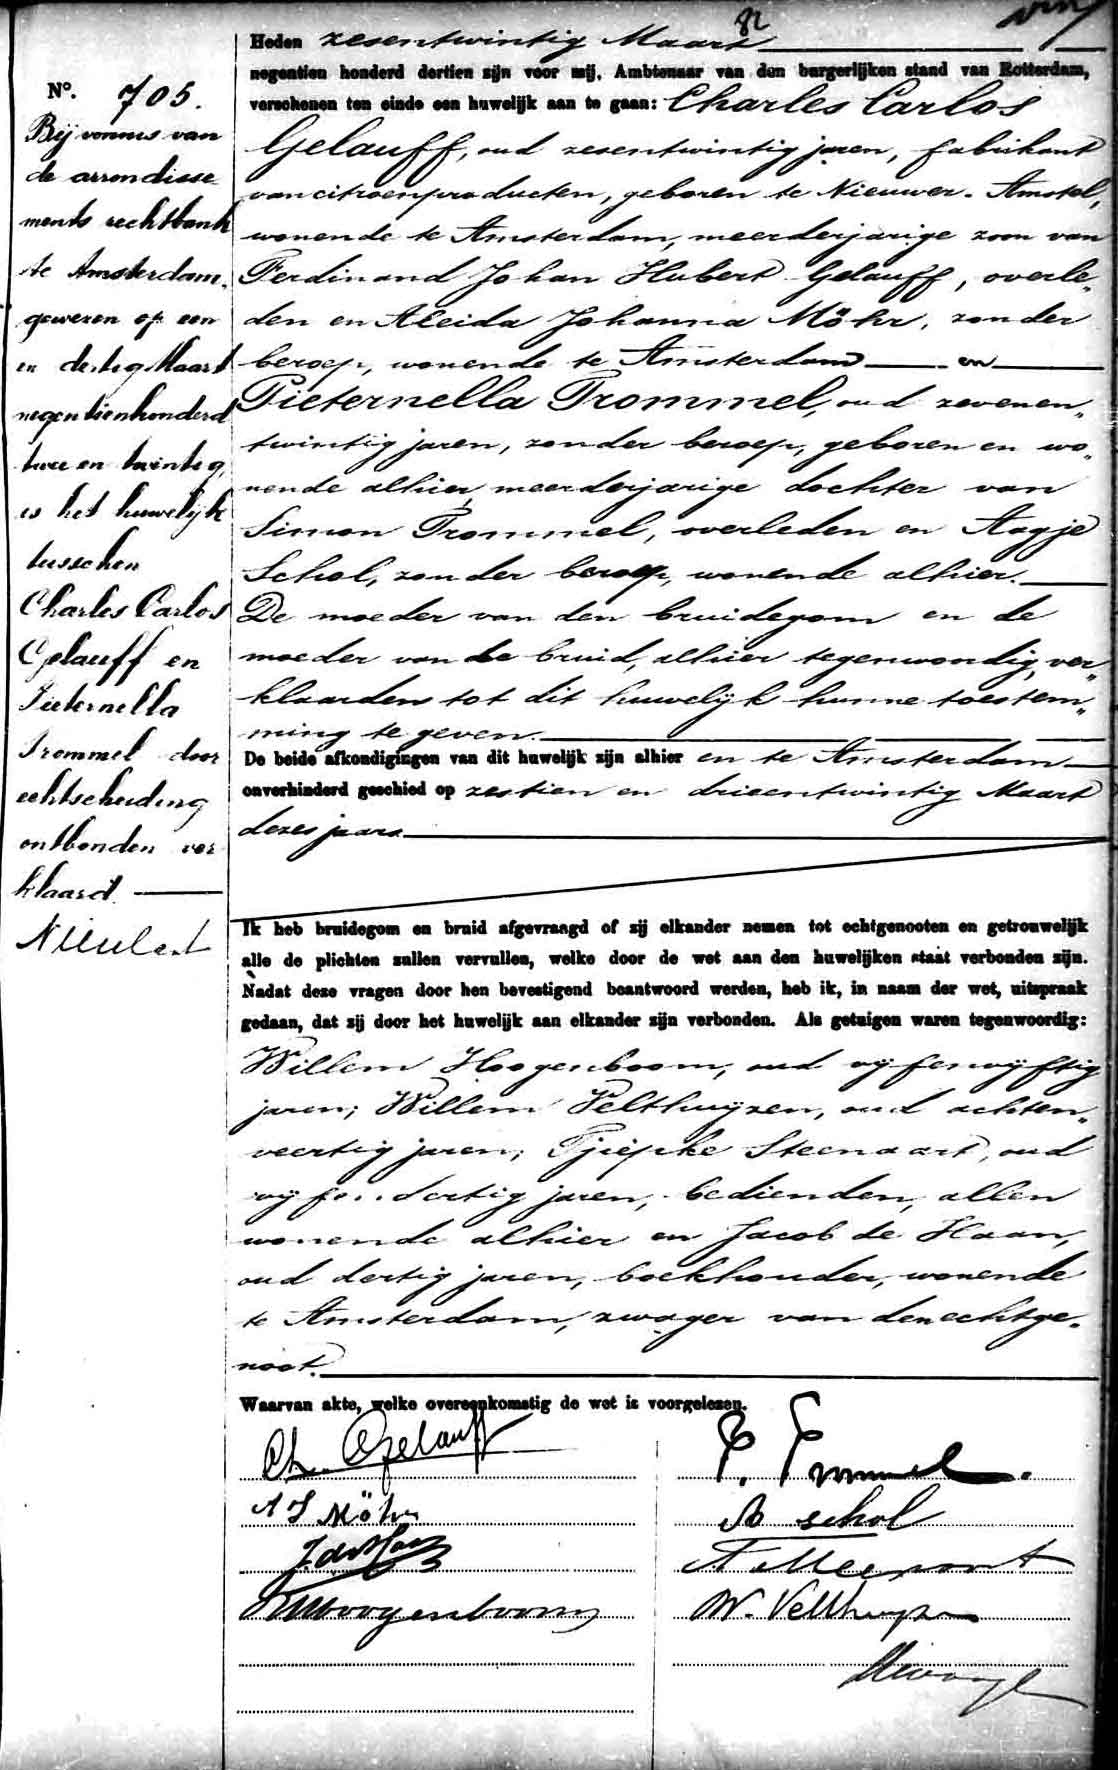 82
Heden zesentwintig Maart
negentien honderd dertien zijn voor mij, Ambtenaar van den burgerlijken stand van Rotterdam,
verschenen ten einde een huwelijk aan te gaan: Charles Carlos
Gelauff, oud zesentwintig jaren, fabrikant
van citroenproducten, geboren te Nieuwer-Amstel,
wonende te Amsterdam, meerderjarige zoon van
Ferdinand Johan Hubert Gelauff, overle„
den en Aleida Johanna Möhr, zonder
beroep, wonende te Amsterdam en
Pieternella Trommel, oud zevenen„
twintig jaren, zonder beroep, geboren en wo„
nende alhier, meerderjarige dochter van
Simon Trommel, overleden en Aagje
Schol, zonder beroep, wonende alhier.
De moeder van den bruidegom en de
moeder van de bruid, alhier tegenwoordig, ver„
klaarden tot dit huwelijk hunne toestem„
ming te geven.
De beide afkondigingen van dit huwelijk zijn alhier en te Amsterdam
onverhinderd geschied op zestien en drieentwintig Maart
dezes jaars
Ik heb bruidegom en bruid afgevraagd of zij elkander nemen tot echtgenooten en getrouwelijk
alle de plichten zullen vervullen, welke door de wet aan den huwelijken staat verbonden zijn.
Nadat deze vragen door hen bevestigend beantwoord werden, heb ik, in naam der wet, uitspraak
gedaan, dat zij door het huwelijk aan elkander zijn verbonden. Als getuigen waren tegenwoordig:
Willem Hoogenboom, oud vijfenvijftig
jaren; Willem Velthuyzen, oud achten„
veertig jaren; Tjiepke Steenaart, oud
vijfendertig jaren, bedienden, allen
wonende alhier en Jacob de Haan,
oud dertig jaren, boekhouder, wonende
te Amsterdam, zwager van den echtge„
noot.
Waarvan akte, welke overeenkomstig de wet is voorgelezen.
Ch. Gelauff
P. Trommel.
A J Möhr
A schol
J. de Haan
WHoogenboom
W. Velthuyzen
No. 705.
Bij vonnis van
de arrondisse
ments rechtbank
te Amsterdam.
gewezen op een
en dertig Maart
negentienhonderd
twee en twintig,
is het huwelijk
tusschen
Charles Carlos
Gelauff en
Pieternella
Trommel door
echtscheiding
ontbonden ver
klaard.